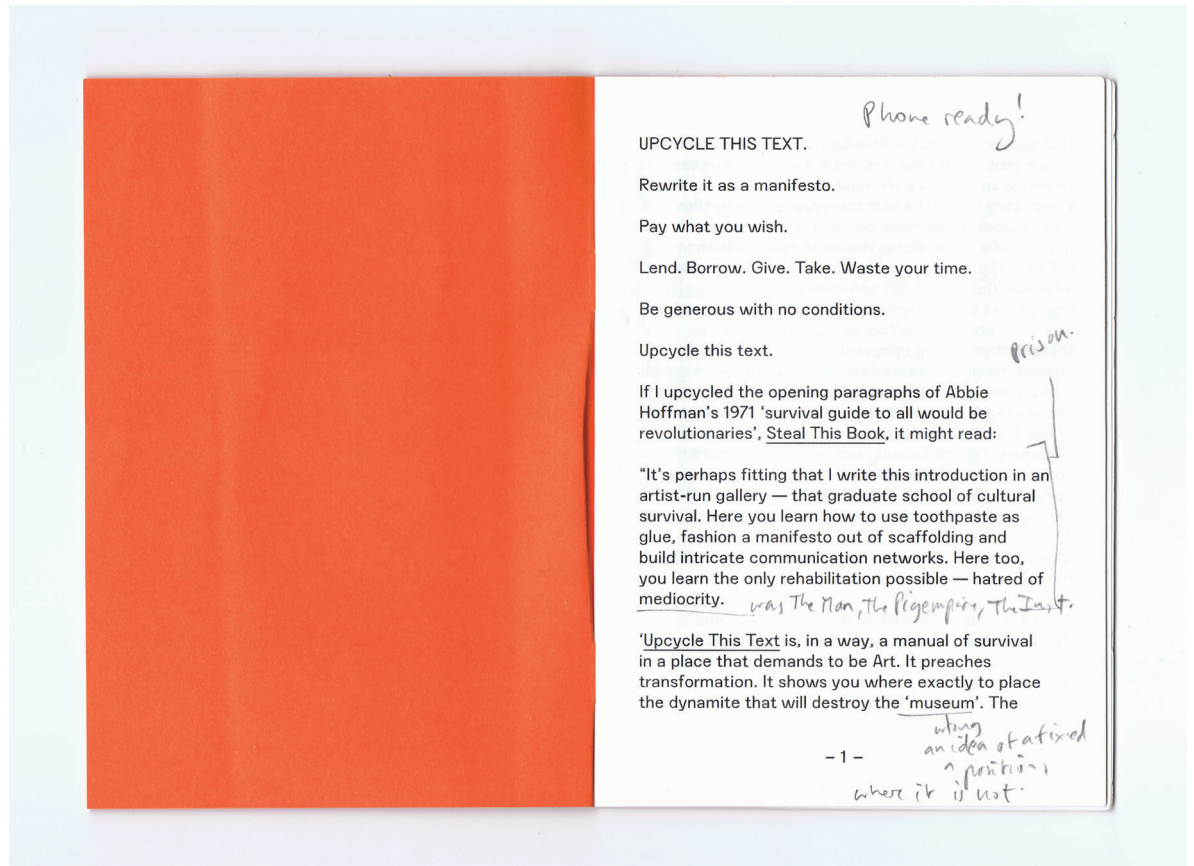 Phone ready!
UPCYCLE THIS TEXT.
Rewrite it as a manifesto.
Pay what you wish.
Lend. Borrow. Give. Take. Waste your time.
Be generous with no conditions.
Upcycle this text.
prison.
If I upcycled the opening paragraphs of Abbie
Hoffman's 1971 ‘survival guide to all would be
revolutionaries’, Steal This Book, it might read:
“It's perhaps fitting that I write this introduction in an
artist-run gallery — that graduate school of cultural
survival. Here you learn how to use toothpaste as
glue, fashion a manifesto out of scaffolding and
build intricate communication networks. Here too,
you learn the only rehabilitation possible — hatred of
mediocrity.
was The Man, The Pigempire, The Inst.
‘Upcycle This Text is, in a way, a manual of survival
in a place that demands to be Art. It preaches
transformation. It shows you where exactly to place
the dynamite that will destroy the ‘museum’. The
an idea of a fixed
position,
where it is not.
– 1 –